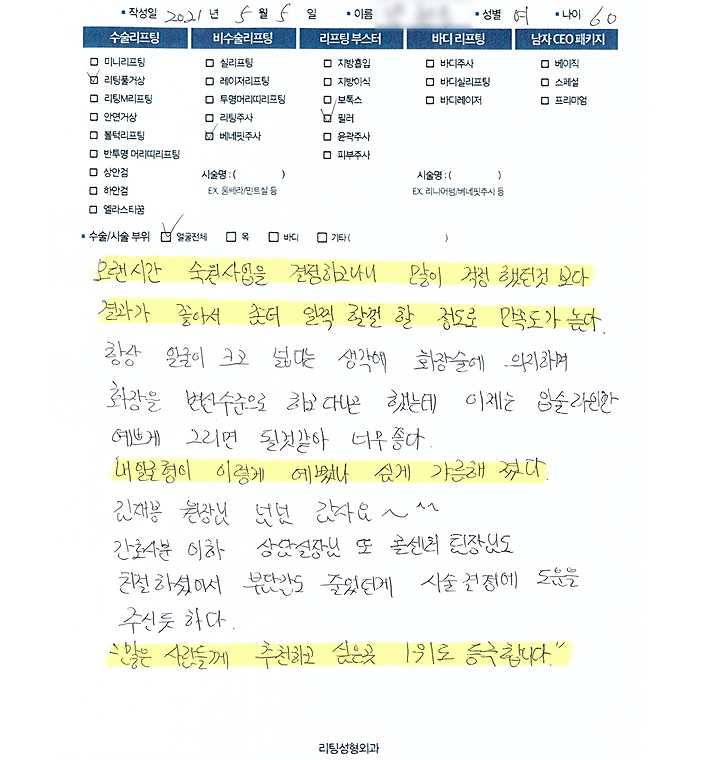 작성일 2021 년 5 월 5 일 이름 성별 여 나이 60
수술리프팅 비수술리프팅 리프팅 부스터 바디 리프팅 남자 CEO 패키지
미니리프팅 실리프팅 지방흡입 바디주사 베이직
리팅풀거상 레이저리프팅 지방이식 바디실리프팅 스페셜
리팅M리프팅 투명머리띠리프팅 보톡스 바디레이저 프리미엄
안면거상 리팅주사 필러
볼턱리프팅 베네핏주사 윤곽주사
반투명 머리띠리프팅 피부주사
상안검 시술명 : ( ) 시술명 : ( )
하안검 EX. 울쎄라/민트실 등 EX. 리니어펌/베네핏주사 등
엘라스티꿈
수술/시술 부위 얼굴전체 목 바디 기타 ( )
오랜시간 숙원사업을 결정하고나니 많이 걱정 했던것 보다
결과가 좋아서 좀더 일찍 할껄 할 정도로 만족도가 높다.
항상 얼굴이 크고 넓다는 생각에 화장술에 의지하며
화장을 변신수준으로 하고 다니곤 했는데 이제는 입술라인만
예쁘게 그리면 될것같아 너무좋다.
내얼굴형이 이렇게 예뻤나 싶게 갸름해 졌다.
김재봉 원장님 넘넘 감사요 ~ ^^
간호사분 이하 상담실장님 또 콜센터 팀장님도
친절하셨어서 부담감도 줄었던게 시술 결정에 도움을
주신듯 하다.
"많은 사람들께 추천하고 싶은곳 1위로 등극합니다."
리팅성형외과